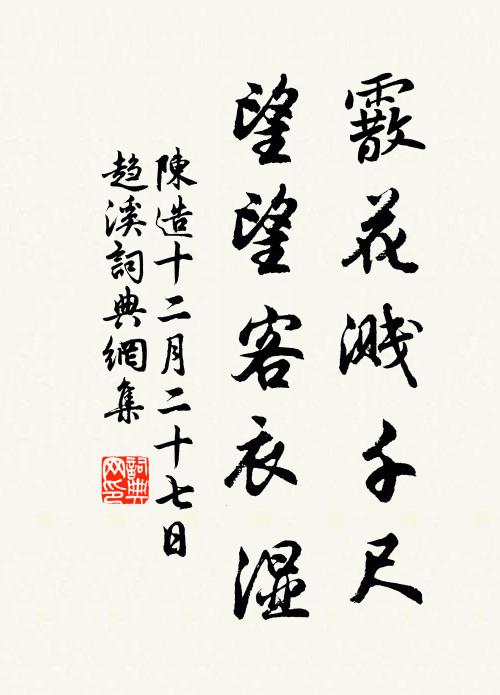 霰花濺千尺
望望客衣湿
陳造十二月二十七日
溪詞典網集
詞典网印